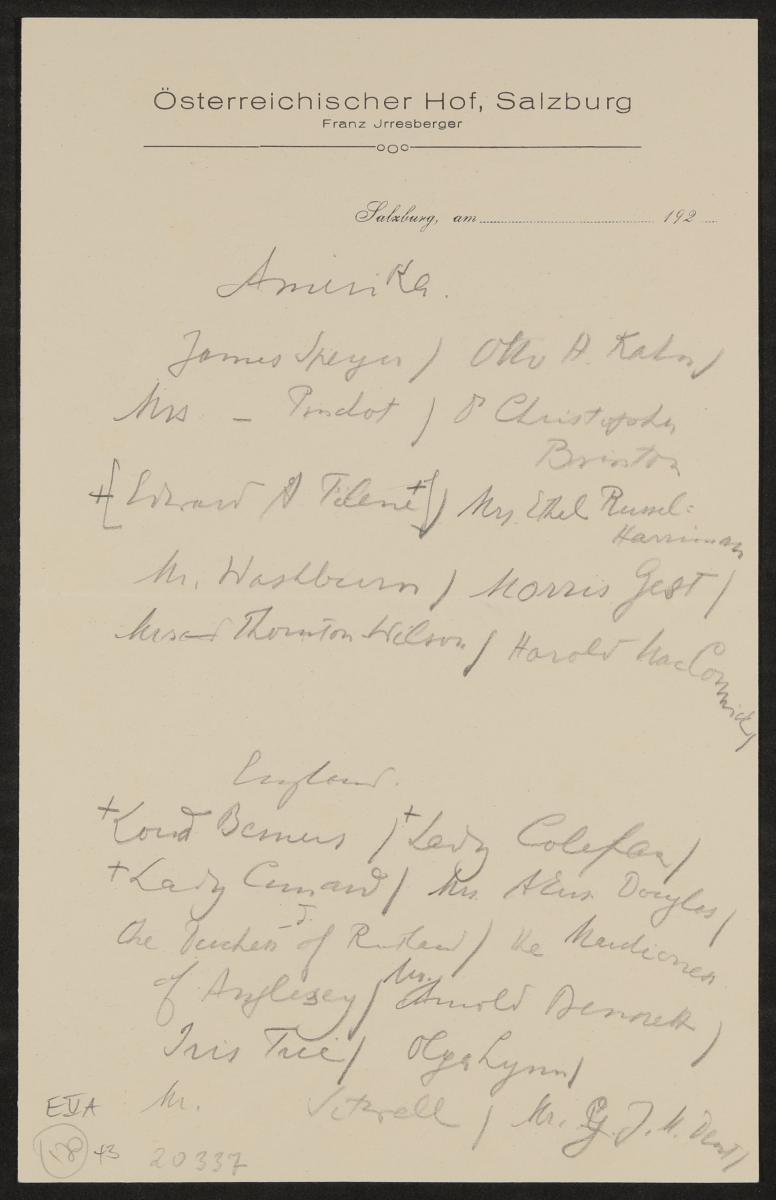 Österreichischer Hof, Salzburg
Franz Jrresberger
Salzburg, am 192
Amerika.
James Speyer / Otto H. Kahn /
Mrs – / Dr Christopher
Brinton
+ [Edward A Filene +] / Mrs. Ethel Russel=
Harriman
Mr. Washburn / Morris Gest /
Mrs Thornton Wilson / Harold MacCormick /
England.
+ Lord Berners / + Lady Colefax /
+ Lady Cunard / Mrs. Douglas /
the Duchess of Rutland / the
of Anglesey / Mr. Arnold Bennett /
Iris Tree / Olga Lynn /
Mr. Sitwell / Mr. J. M. Dent /
E IV A
158 +3 20337